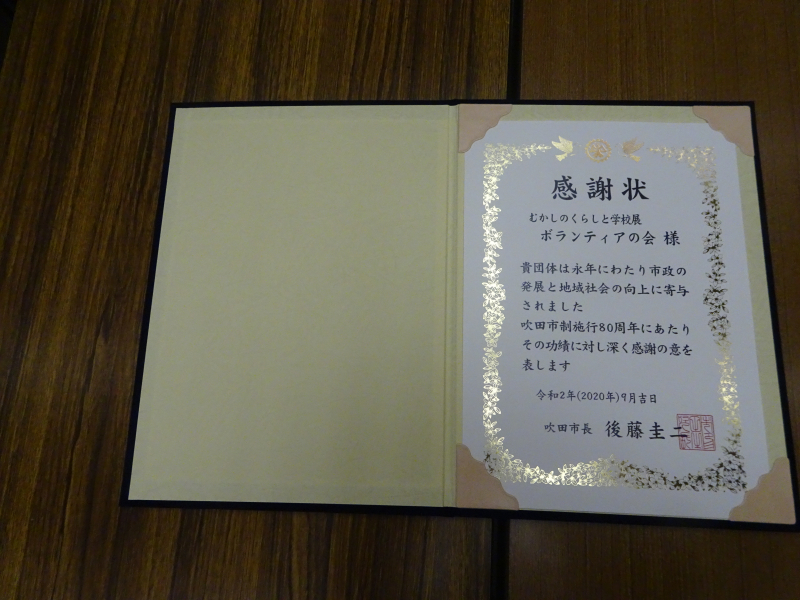 感謝状
むかしのくらしと学校展
ボランティアの会 様
貴団体は永年にわたり市政の
発展と地域社会の向上に寄与
されました
吹田市制施行80周年にあたり
その功績に対し深く感謝の意を
表します
令和2年(2020年)9月吉日
吹田市長 後藤圭二